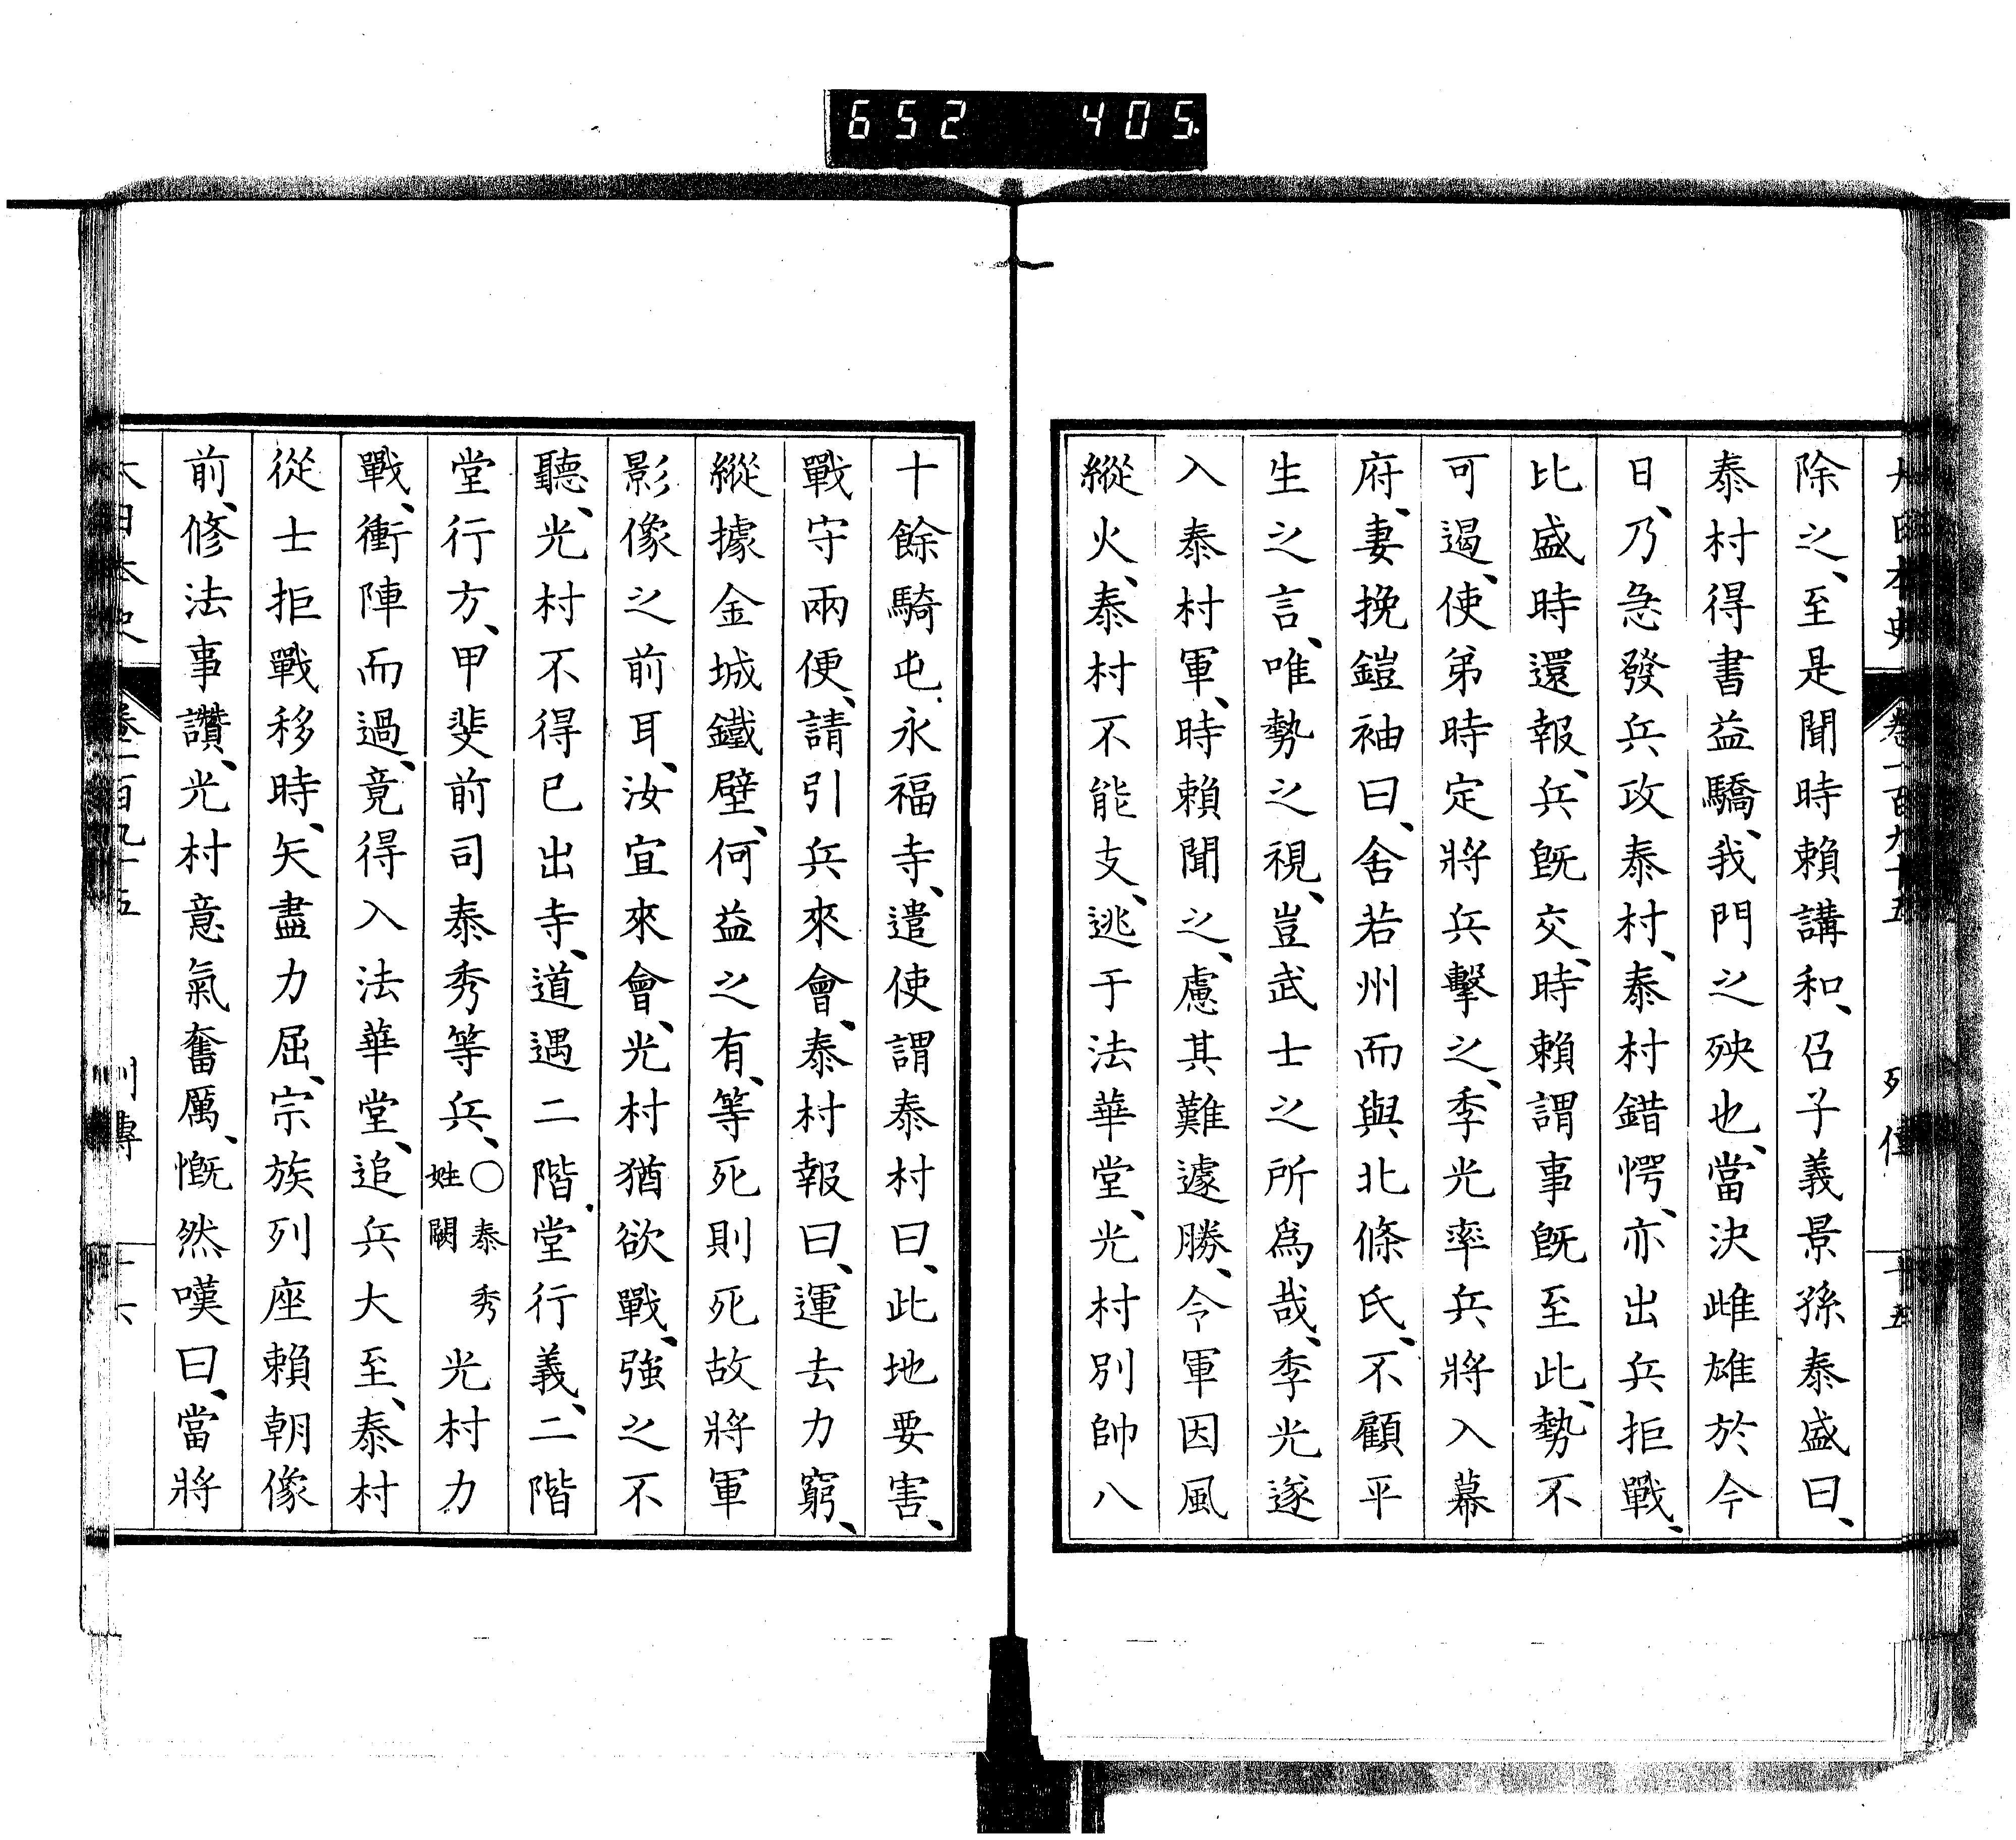 652 405
大日本史 卷一百九十五 列傳 十五
除之、至是聞時賴講和、召子義景孫泰盛曰、
泰村得書益驕、我門之殃也、當決雌雄於今
日、乃急發兵攻泰村、泰村錯愕、亦出兵拒戰、
比盛時還報、兵既交、時賴謂事既至此、勢不
可遏、使弟時定將兵擊之、季光率兵將入幕
府、妻挽鎧袖曰、舍若州而與北條氏、不顧平
生之言、唯勢之視、豈武士之所爲哉、季光遂
入泰村軍、時賴聞之、慮其難遽勝、令軍因風
縱火、泰村不能支、逃于法華堂、光村別帥八
十餘騎屯永福寺、遣使謂泰村曰、此地要害、
戰守兩便、請引兵來會、泰村報曰、運去力窮、
縱據金城鐵壁、何益之有、等死則死故將軍
影像之前耳、汝宜來會、光村猶欲戰、強之不
聽、光村不得已出寺、道遇二階堂行義、二階
堂行方、甲斐前司泰秀等兵、〇泰秀姓闕光村力
戰、衝陣而過、竟得入法華堂、追兵大至、泰村
從士拒戰移時、矢盡力屈、宗族列座賴朝像
前、修法事讚、光村意氣奮厲、慨然嘆曰、當將
大日本史 卷一百九十五 列傳 十六